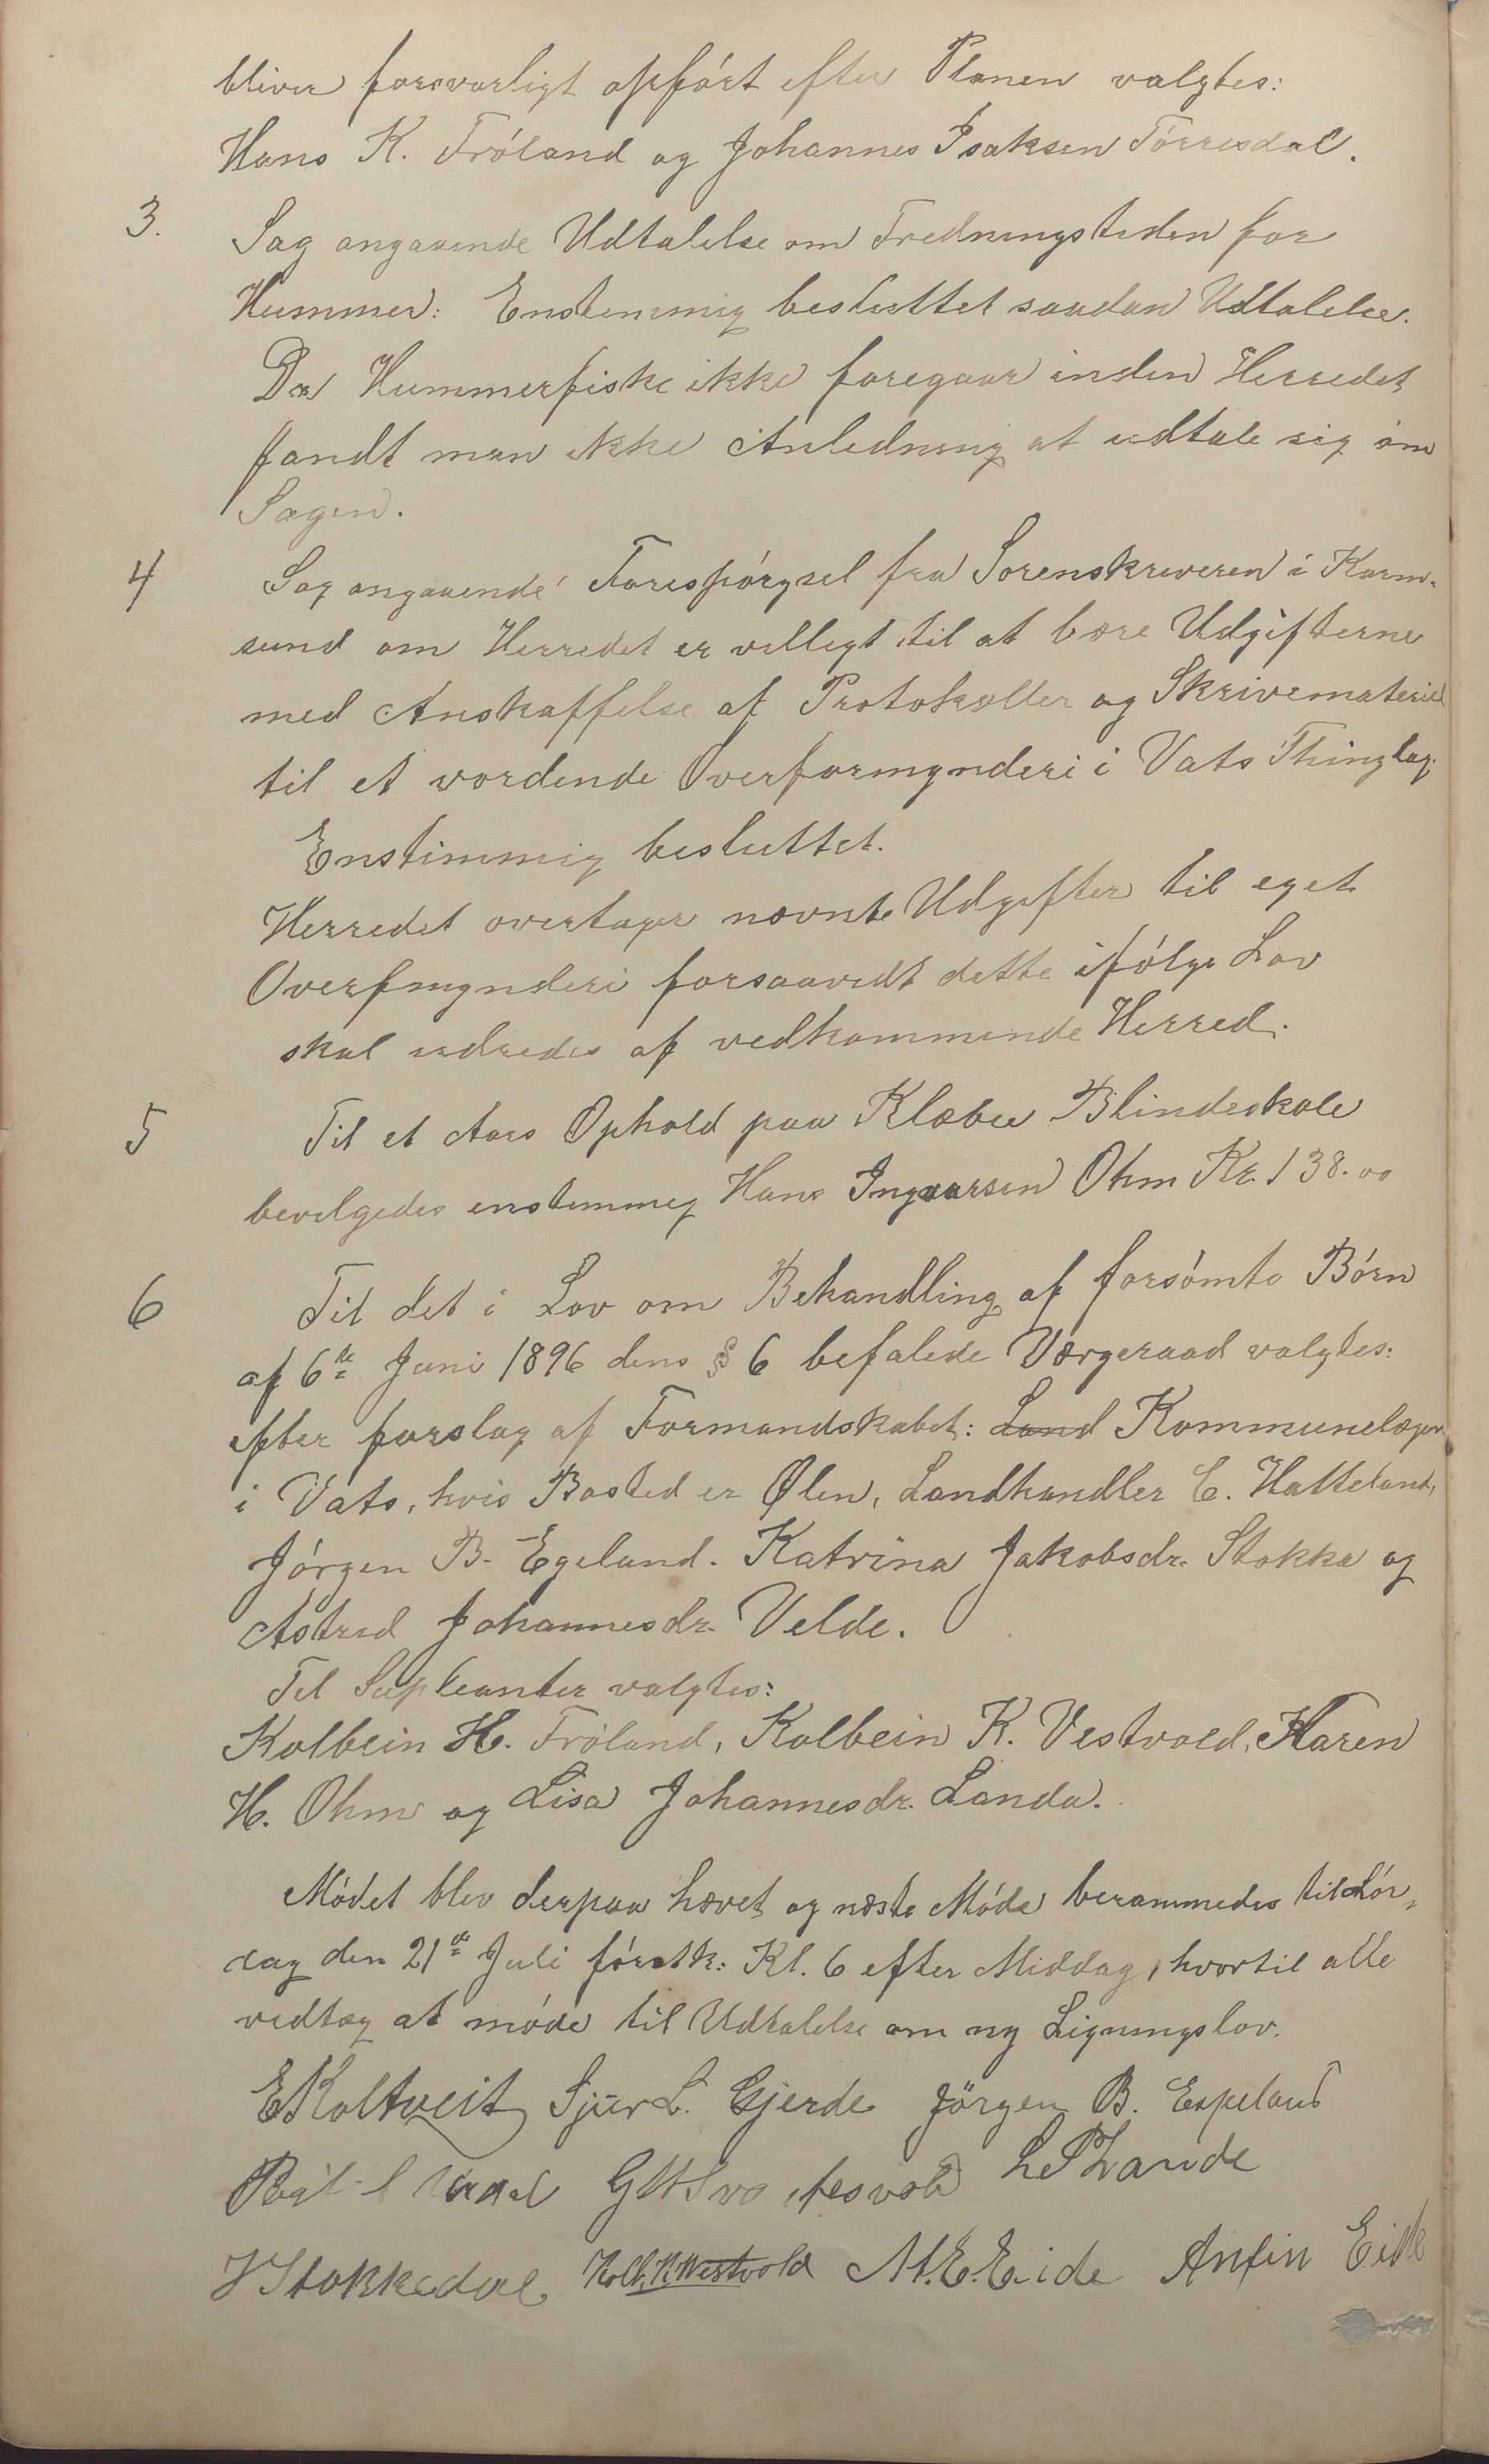 bliver forsvarligt opført efter Planen valgtes:
Hans K. Frøland og Johannes Isaksen Tørresdal.
3. Sag angaaende Udtalelse om Fredningstiden for
Hummer: Enstemmig besluttet saadan Udtalelse.
Da Hummerfiske ikke foregaar inden Herredet
fandt man ikke Anledning at udtale sig om
Sagen.
4 Sag angaaende Forespørgsel fra Sorenskriveren i Karm-
sund om Herredet er villigt til at bære Udgifterne
med Anskaffelse af Protokoller og Skrivemateriel
til et vordende Overformynderi i Vats Thinglag.
Enstimmig besluttet.
Herredet overtager nævnte Udgifter til eget
Overfmynderi forsaavidt dette ifølge Lov
skal udredes af vedkommende Herred.
5 Til et Aars Ophold paa Klæbu Blindeskole
bevilgedes enstemmig Hans Ingvarsen Ohm Kr. 138.00
6 Til det i Lov om Behandling af forsømte Børn
af 6te Juni 1896 dens § 6 befalede Værgeraad valgtes:
efter forslag af Formandskabet: Land Kommunelægen
i Vats, hvis Bosted er Ølen, Landhandler C. Hatteland,
Jørgen B. Egeland. Katrina Jakobsdr. Stokka og
Astrid Johannesdr. Velde.
Til Supleanter valgtes:
Kolbein H. Frøland, Kolbein K. Vestvold, Karen
H. Ohm og Lisa Johannesdr. Landa.
Mødet blev derpaa hævet og næste Møde berammedes til Lør-
dag den 21de Juli førstk: Kl. 6 efter Middag, hvortil alle
vedtog at møde til Udtalelse om ny Ligningslov.
E Koltveit Sjur L. Gjerde Jörgen B. Espeland
L P Lande
J Stokkedal Kolb. K. Westvold M. E. Eide Anfin Eik